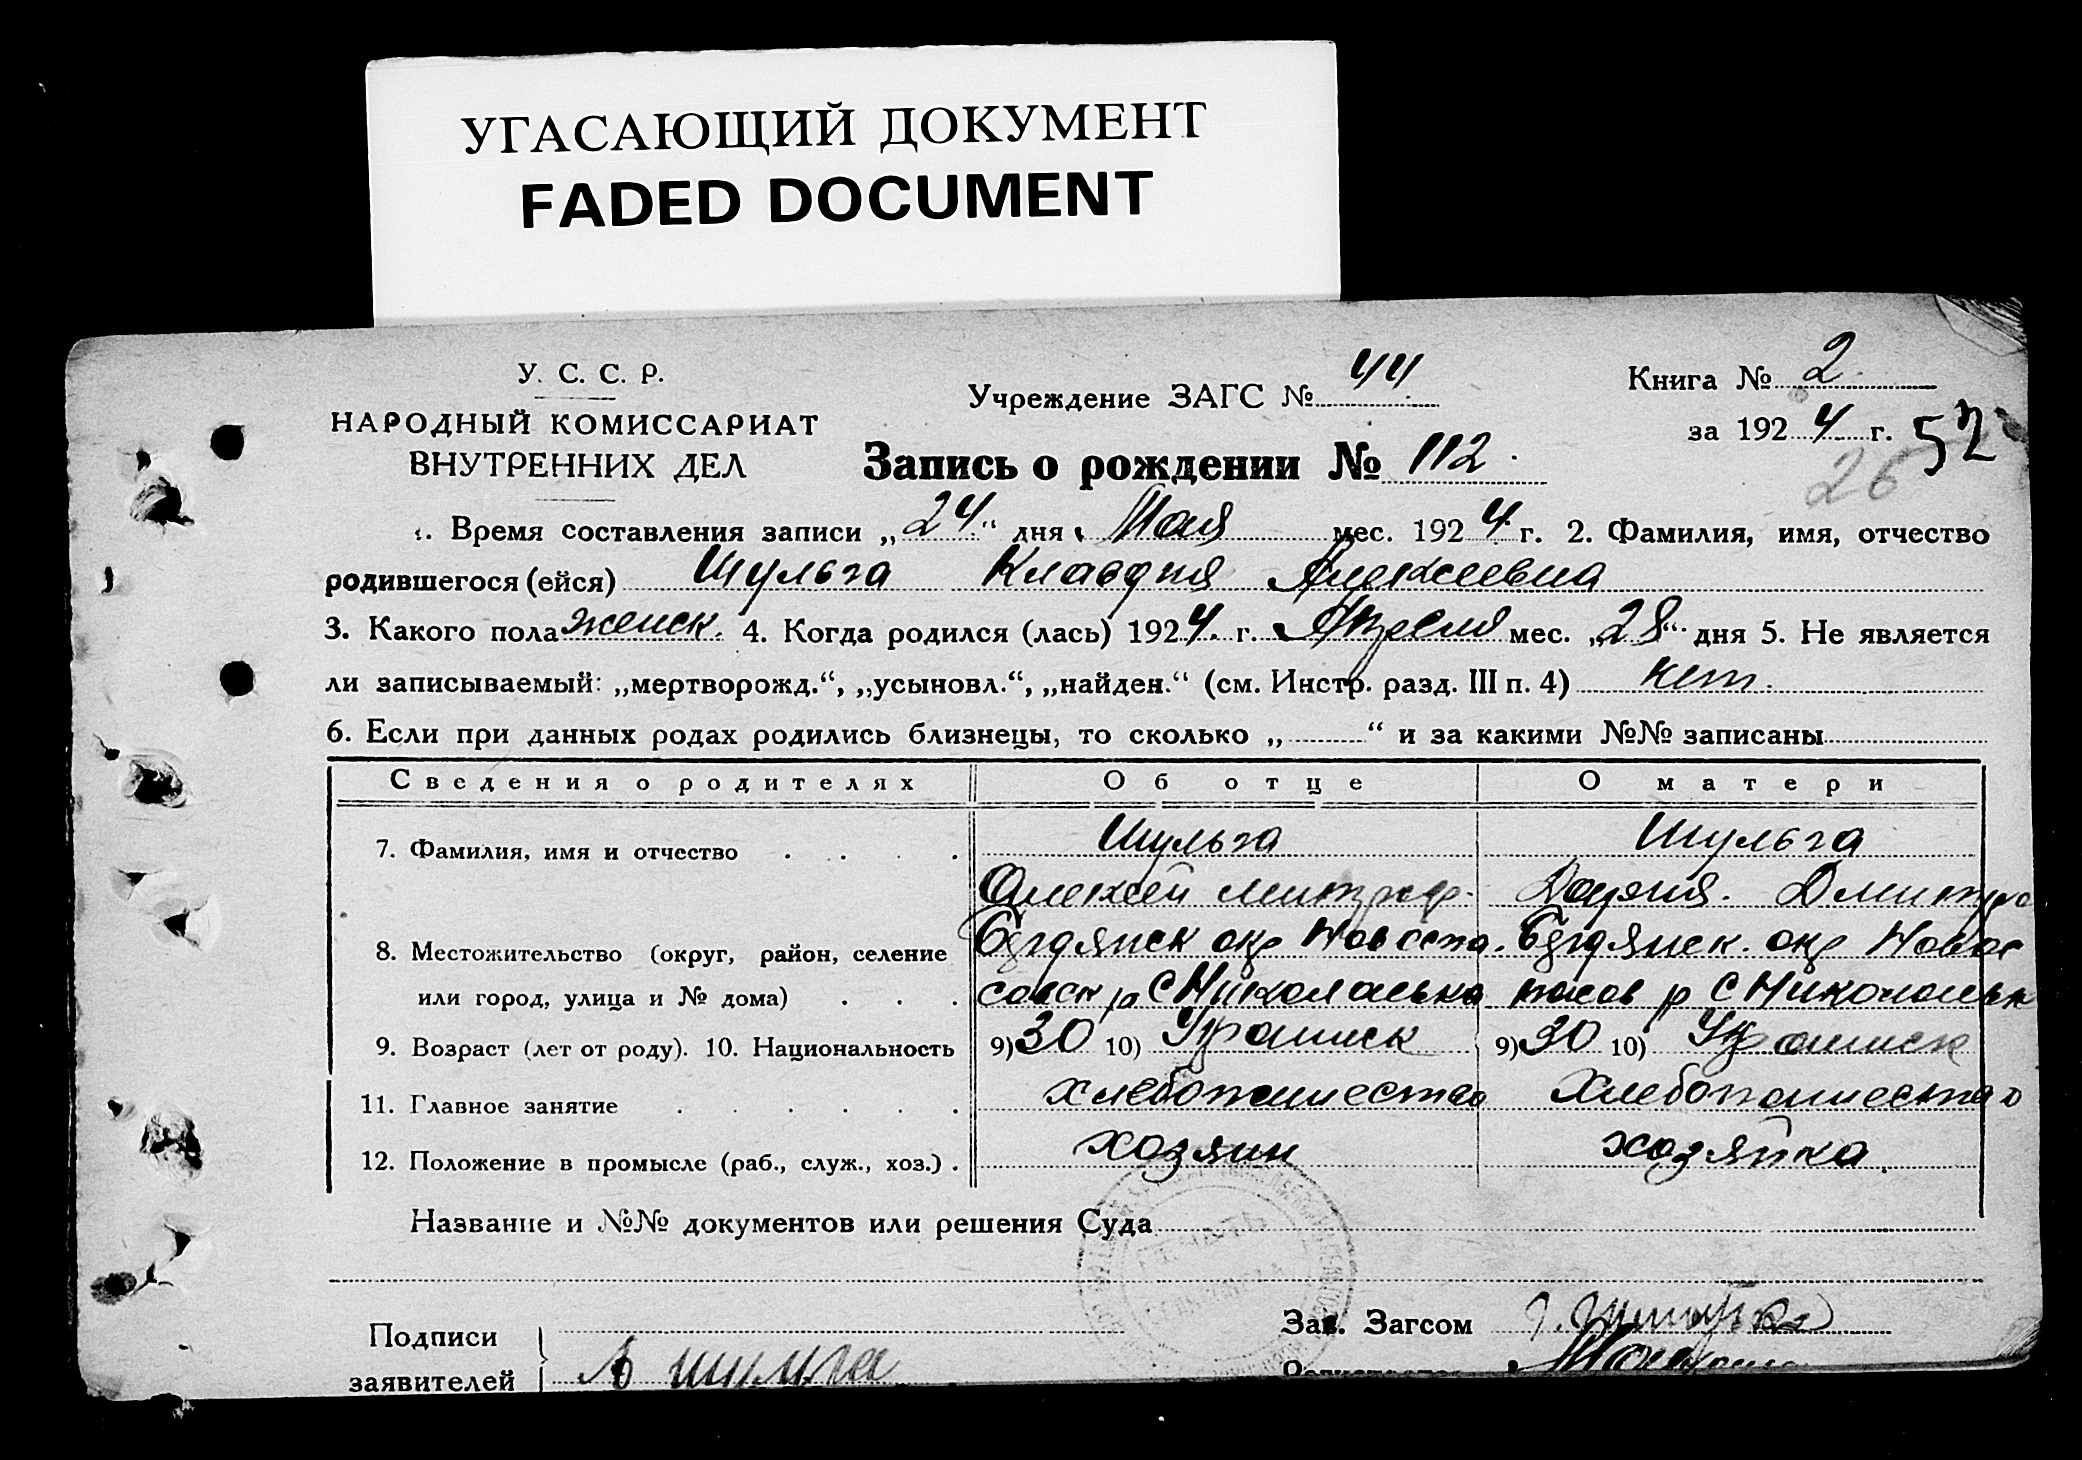 УГАСАЮЩИЙ ДОКУМЕНТ
FADED DOCUMENT
У. С. С. Р.
НАРОДНЫЙ КОМИССАРИАТ
ВНУТРЕННИХ ДЕЛ
Учреждение ЗАГС № 44
Книга № 2
за 1924 г. 52
26
Запись о рождении № 112.
1. Время составления записи „24“ дня Мая мес. 1924 г. 2. Фамилия, имя, отчество
родившегося (ейся) Шульга Клавдия Алексеевна
3. Какого пола женск. 4. Когда родился (лась) 1924 г. Апреля мес. „28“ дня 5. Не является
ли записываемый: „мертворожд.“, „усыновл.“, „найден.“ (см. Инстр. разд. III п. 4) нет.
6. Если при данных родах родились близнецы, то сколько „ “ и за какими №№ записаны
Сведения о родителях Об отце О матери
7. Фамилия, имя и отчество Шульга Шульга
Алексей Митроф. Дария. Дмитро
8. Местожительство (округ, район, селение Бердянск окр Новоспа. Бердянск. окр Новос
или город, улица и № дома) совск р С Николаевка пасов р С Николаевк
9. Возраст (лет от роду). 10. Национальность 9) 30 10) Украинск 9) 30 10) Украинск
11. Главное занятие хлебопашество Хлебопашество
12. Положение в промысле (раб., служ., хоз.) хозяин хозяйка.
Название и №№ документов или решения Суда
Подписи
заявителей А Шульга
Зав. Загсом